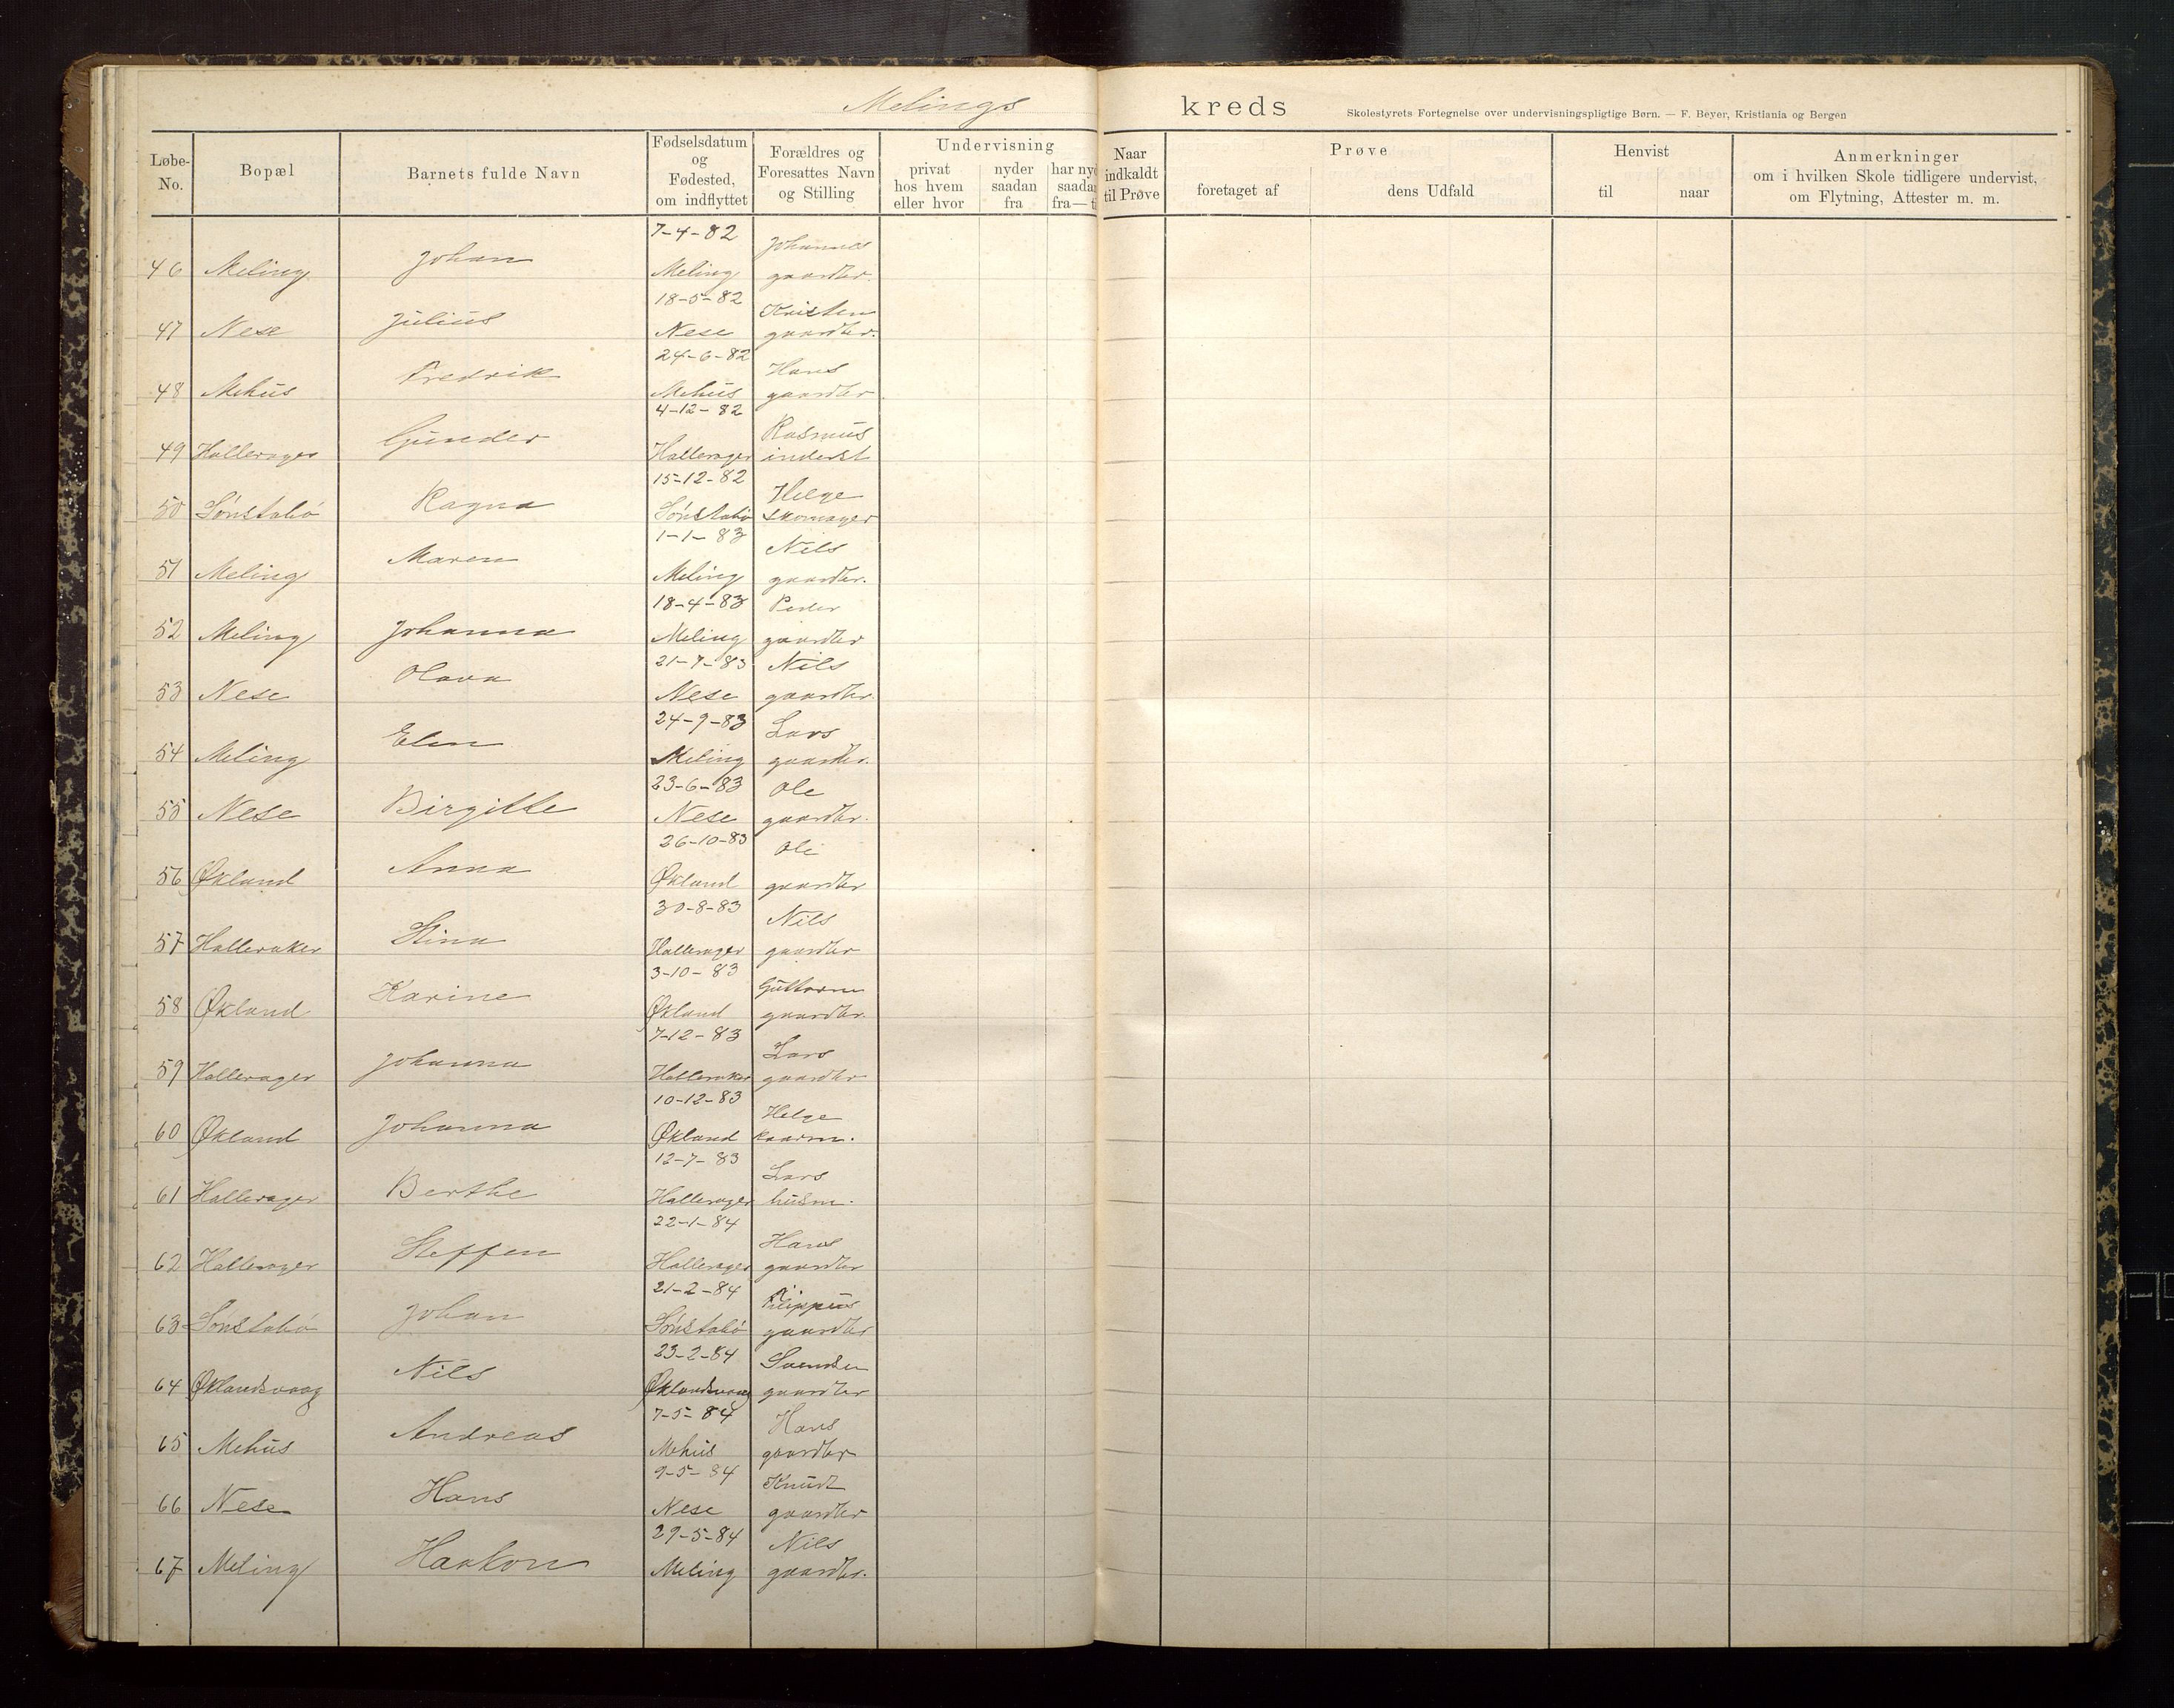 Melings kreds
Skolestyrets Fortegnelse over undervisningspligtige Børn. — F. Beyer, Kristiania og Bergen
Løbe-No. Bopæl Barnets fulde Navn Fødselsdatum og Fødested, om indflyttet Forældres og Foresattes Navn og Stilling Undervisning privat hos hvem eller hvor nyder saadan fra har nyd saadan fra—t
Naar indkaldt til Prøve Prøve foretaget af dens Udfald Henvist til naar Anmerkninger om i hvilken Skole tidligere undervist, om Flytning, Attester m. m.
7-4-82 Johannes
46 Meling Johan Meling gaardbr.
18-5-82 Kristen
47 Nese Julius Nese gaardbr.
24-6-82 Hans
48 Mehus Fredrik Mehus gaardbr
4-12-82 Rasmus
49 Hallerager Gunder Hallerager inderst
15-12-82 Helge
50 Sønstabø Ragna Sønstabø skomager
1-1-83 Nils
51 Meling Maren Meling gaardbr.
18-4-83 Peder
52 Meling Johanna Meling gaardbr
21-7-83 Nils
53 Nese Olava Nese gaardbr.
24-9-83 Lars
54 Meling Elen Meling gaardbr.
23-6-83 Ole
55 Nese Birgitte Nese gaardbr.
26-10-83 Ole
56 Økland Anna Økland gaardbr
30-8-83 Nils
57 Halleraker Stina Hallerager gaardbr
3-10-83 Guttorm
58 Økland Karine Økland gaardbr.
7-12-83 Lars
59 Hallerager Johanna Halleraker gaardbr
10-12-83 Helge
60 Økland Johanna Økland kaarm.
12-7-83 Lars
61 Hallerager Berthe Hallerager husm.
22-1-84 Hans
62 Hallerager Steffen Hallerager gaardbr
21-2-84 Filippus
63 Sønstabø Johan Sønstabø gaardbr
23-2-84 Svendsen
64 Øklandsvaag Nils Øklandsvaag gaardbr
7-5-84 Hans
65 Mehus Andreas Mehus gaardbr
9-5-84 Knudt
66 Nese Hans Nese gaardbr
29-5-84 Nils
67 Meling Haakon Meling gaardbr.